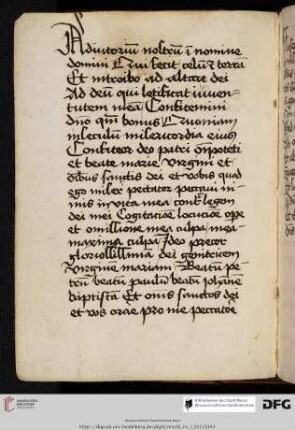 Adiutoriũ nostrũ ĩ nomine
domini Qui fecit celũ & terrã
Et introibo ad altare dei
Ad deũ qui letificat iuuen-
tutem meã Confitemini
dño qm̃ bonus Quoniam
in seculũ misericordia eius
Confiteor deo patri õipoteti
et beate marie Virgini et
õibus sanctis dei et vobis quod
ego miser peccator peccaui ni-
mis in vita mea contᵃ legem
dei mei Cogitacione locucione ope
et omissione mea culpa mea
maxima culpa Ideo precor
gloriosissimã dei genitricem
Virginẽ mariam Beatũ pe-
trũ beatũ paulũ beatũ iohãne
baptistã Et om̃s sanctos dei
et vos orare pro me peccatore
Wissenschaftliche Stadtbibliothek Mainz
DFG